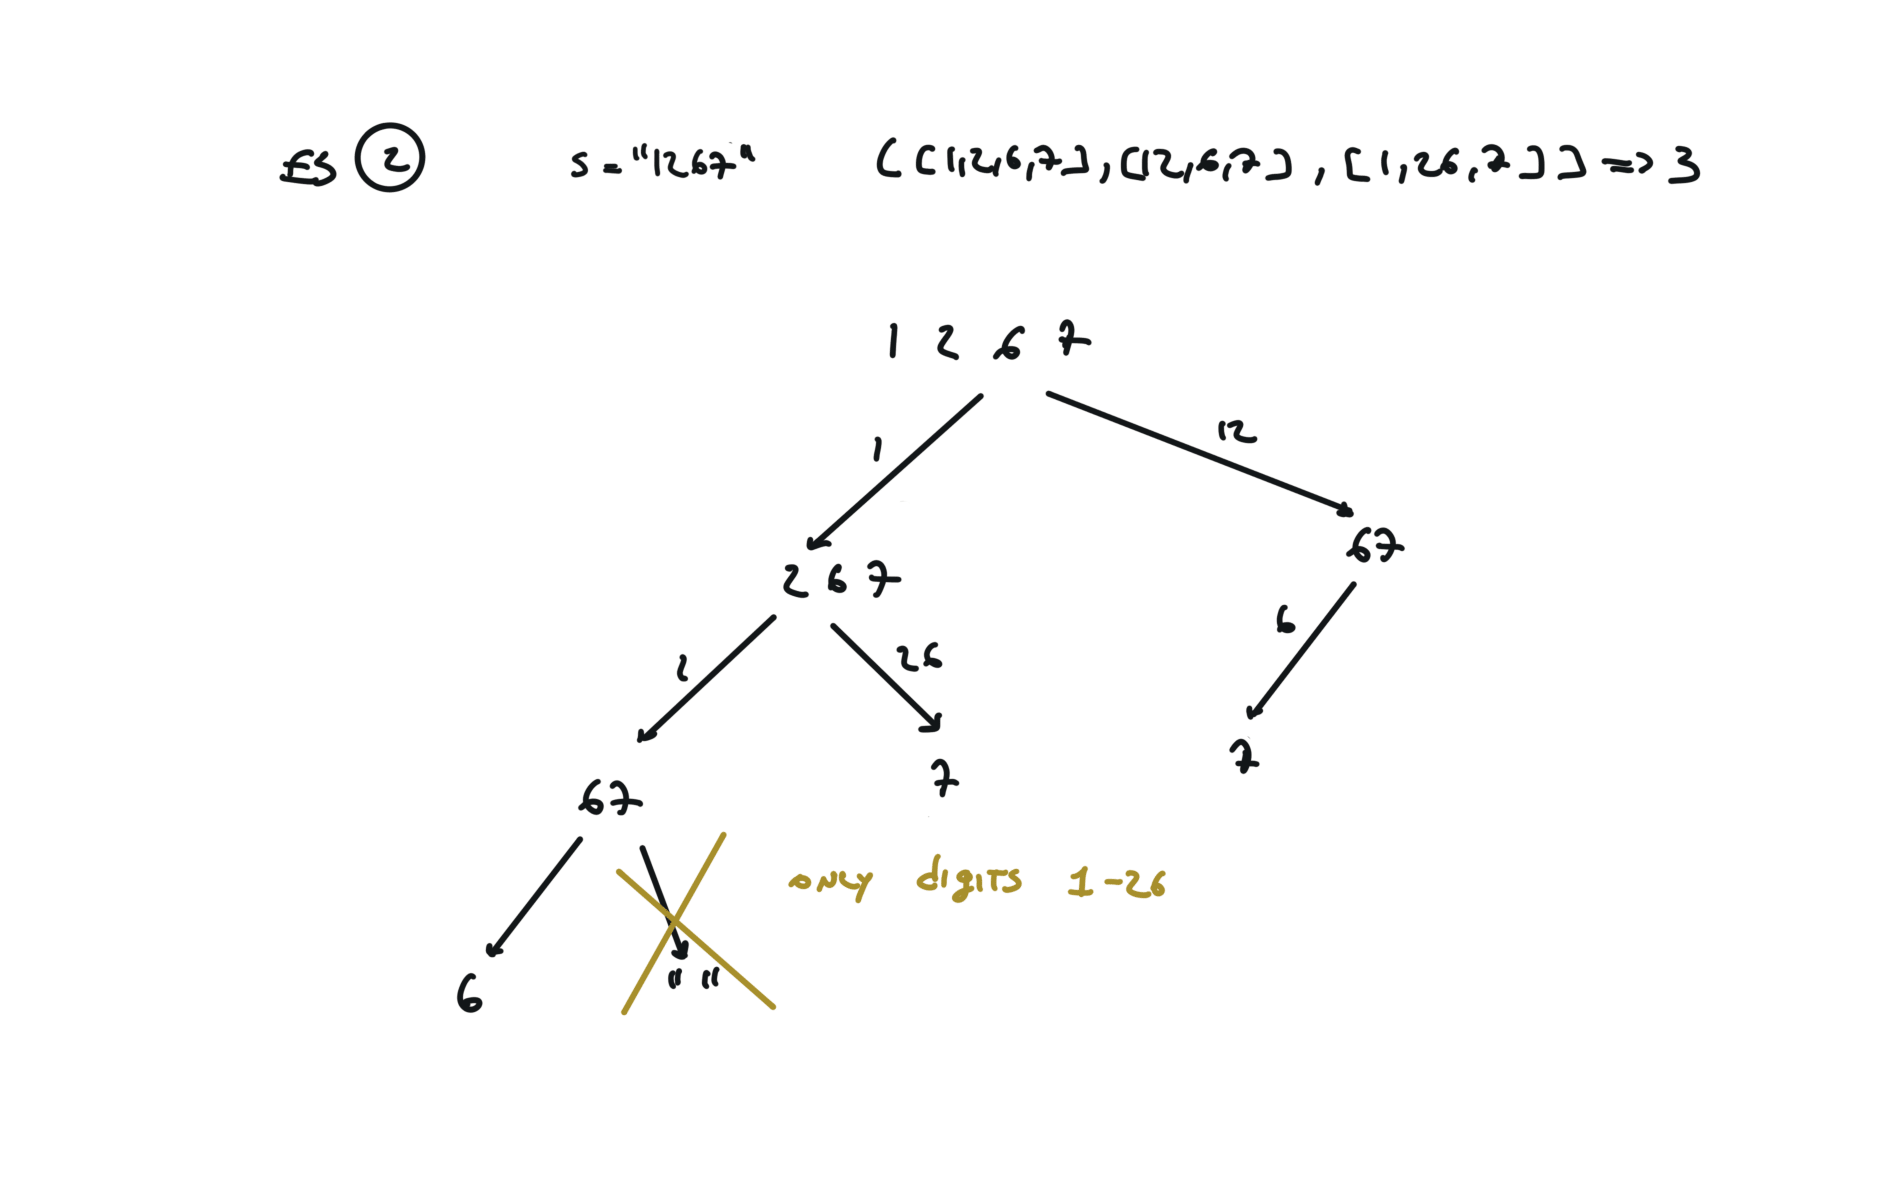 ES 2 s = "1267" ([1,2,6,7],[12,6,7],[1,26,7]] => 3
1 2 6 7
1 12
2 6 7 67
2 26 6
67 7 7
only digits 1-26
6 " "